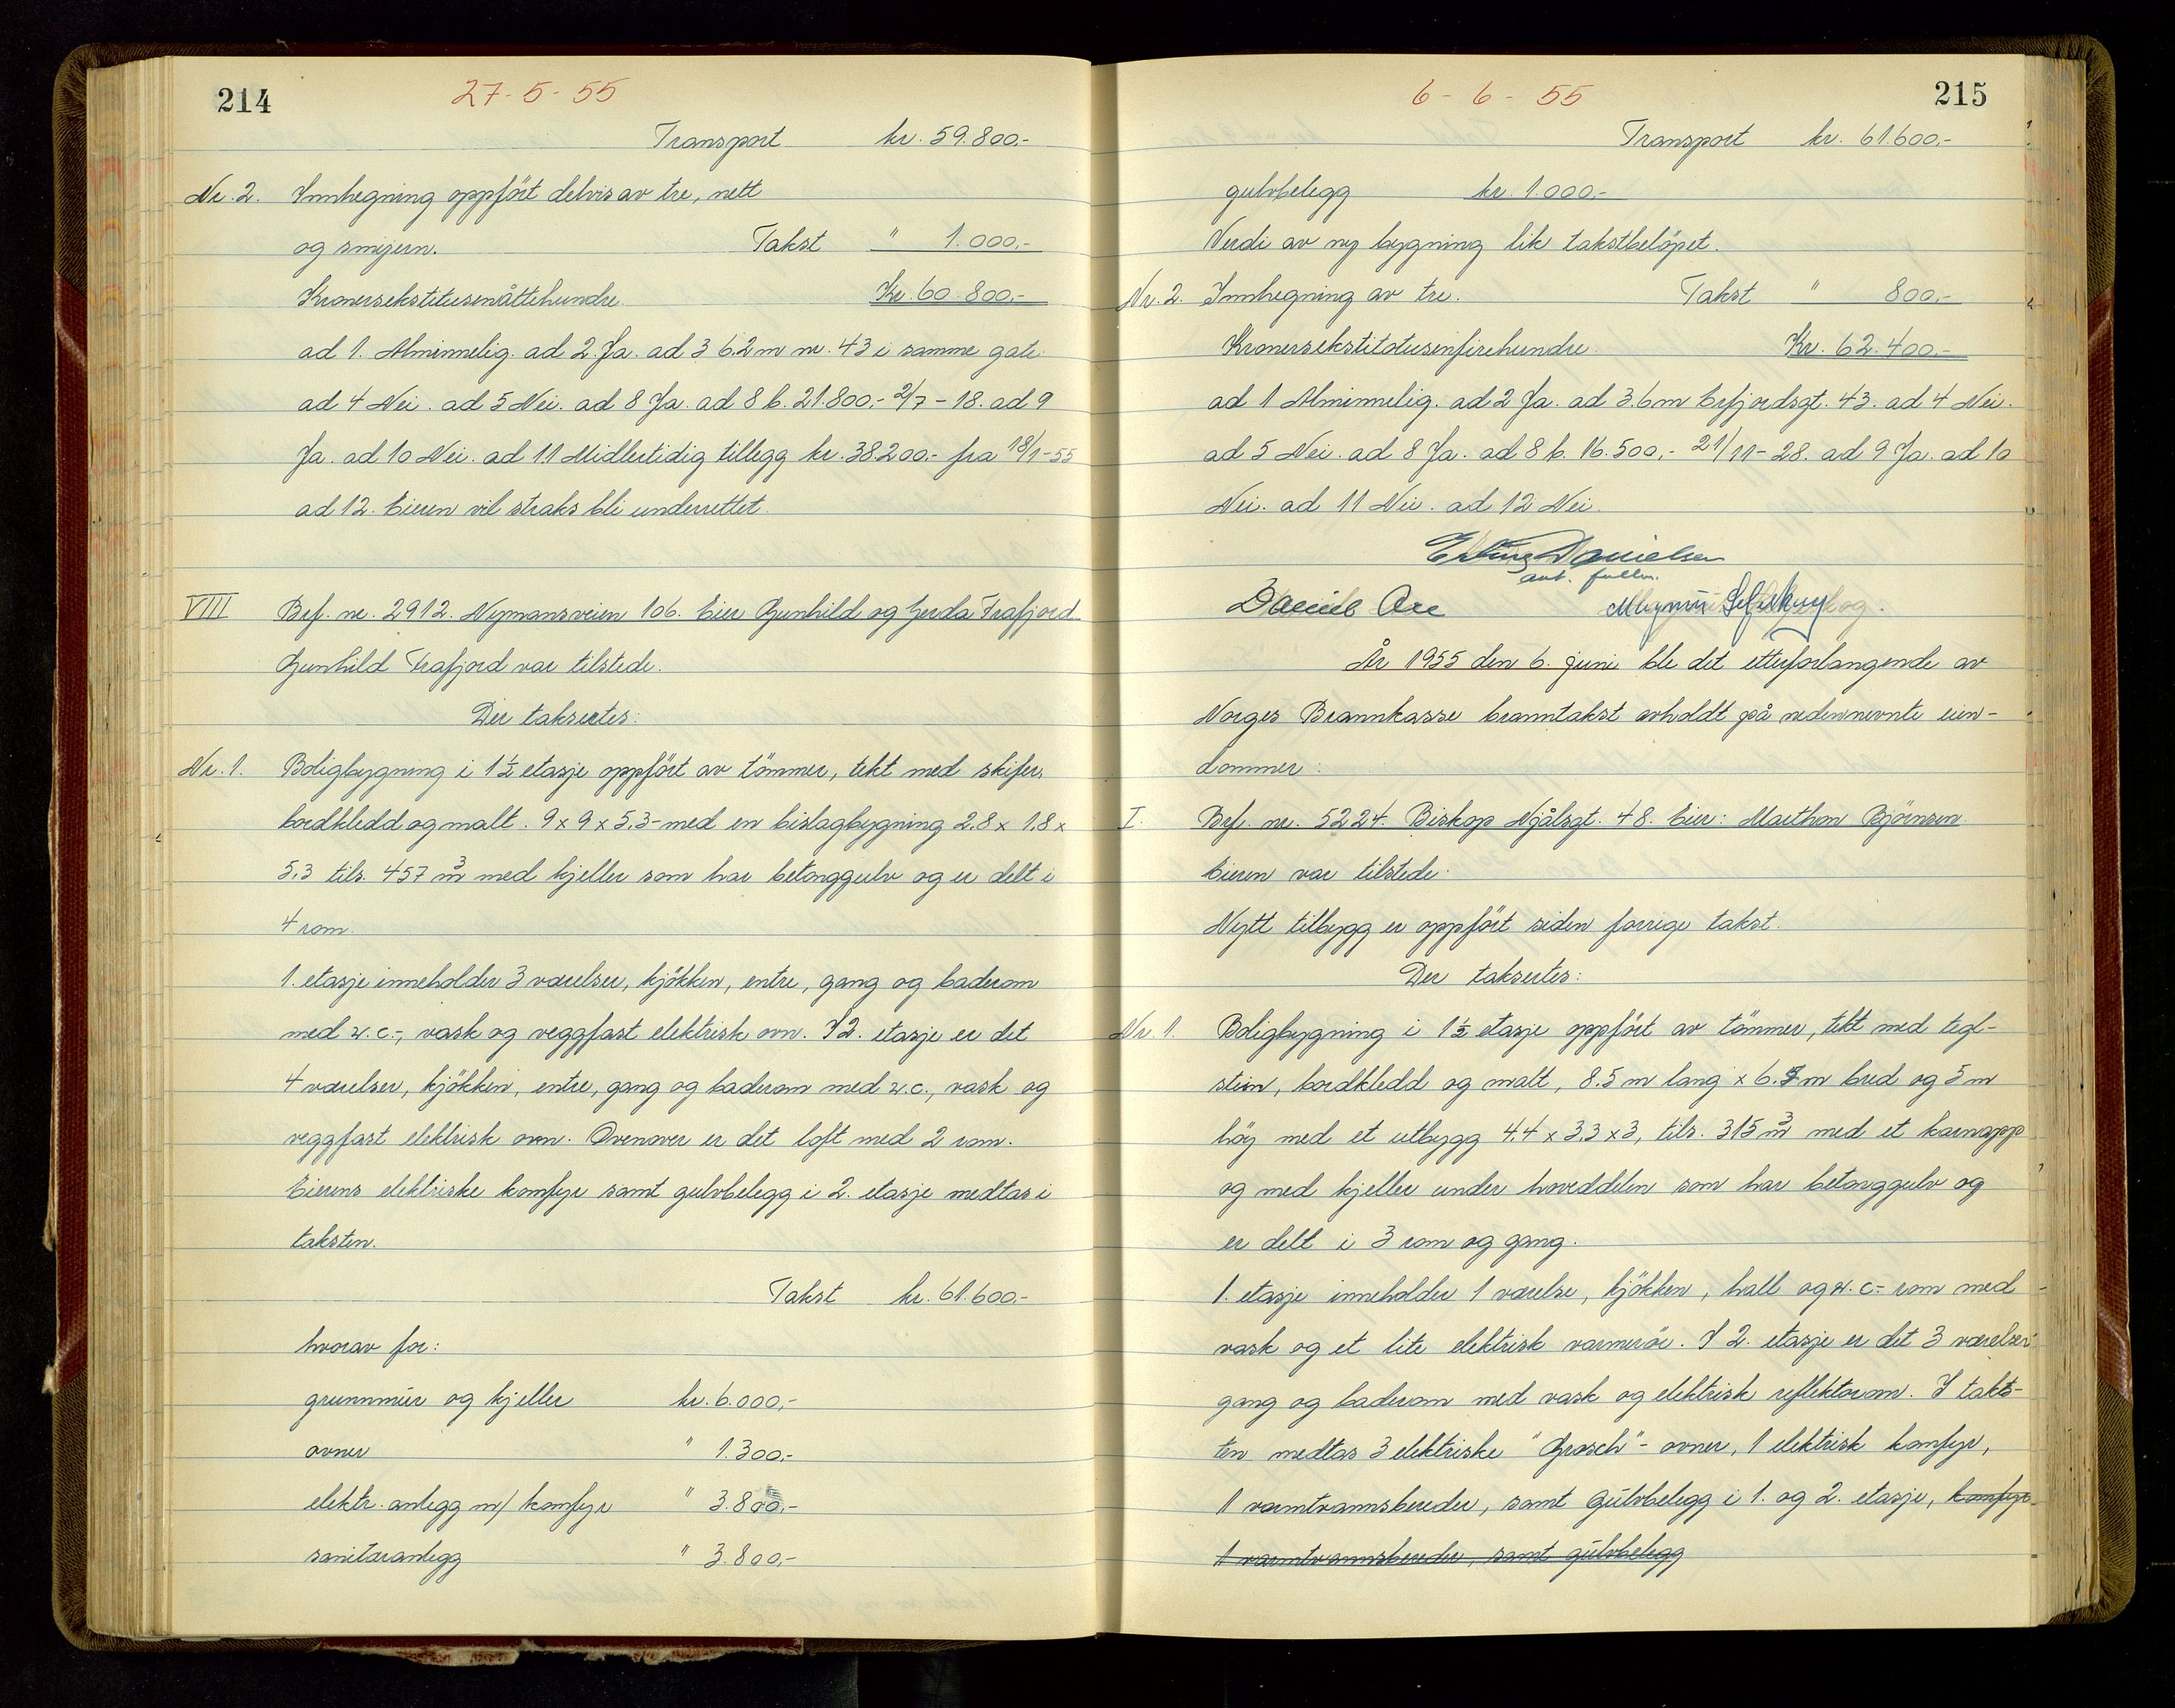 214
27-5-55
Transport kr. 59.800.-
Nr. 2. Innhegning oppfört delvis av tre, nett
og smijern. Takst " 1.000,-
Kronersekstitusenåttehundre. Kr. 60.800,-
ad 1. Alminnelig. ad 2. Ja. ad 3 6.2 m nr. 43 i samme gate.
ad 4 Nei. ad 5 Nei. ad 8 Ja. ad 8 b. 21.800,- 2/7 - 18. ad 9
Ja. ad 10 Nei. ad 11 Midlertidig tillegg kr. 38.200.- fra 18/1-55
ad 12. Eieren vil straks bli underrettet.
VIII Brf. nr. 2912. Nymansveien 106. Eier Gunhild og Gerda Frafjord.
Gunhild Frafjord var tilstede.
Der taksertes:
Nr. 1. Boligbygning i 1 1/2 etasje oppfört av tömmer, tekt med skifer,
bordkledd og malt. 9 x 9 x 5,3 - med en bislagbygning 2,8 x 1,8 x
5,3 tils. 457 m3 med kjeller som har betonggulv og er delt i
4 rom.
1. etasje inneholder 3 værelser, kjökken, entre, gang og baderom
med w.c.-, vask og veggfast elektrisk ovn. I 2. etasje er det
4 værelser, kjökken, entre, gang og baderom med w.c., vask og
veggfast elektrisk ovn. Ovenover er det loft med 2 rom.
Eierens elektriske komfyr samt gulvbelegg i 2. etasje medtas i
taksten.
Takst kr. 61.600.-
hvorav for:
grunnmur og kjeller kr. 6.000,-
ovner " 1.300,-
elektr. anlegg m/ komfyr " 3.800,-
sanitæranlegg " 3.800,-
6-6-55
215
Transport kr. 61.600,-
gulvbelegg kr. 1.000,-
Verdi av ny bygning lik takstbelöpet.
Nr. 2. Innhegning av tre. Takst " 800,-
Kronersekstitotusenfirehundre. Kr. 62.400,-
ad 1 Alminnelig. ad 2 Ja. ad 3. 6 m Erfjordsgt. 43. ad 4 Nei.
ad 5 Nei. ad 8 Ja. ad 8 b. 16.500,- 21/11-28. ad 9 Ja. ad 10
Nei. ad 11 Nei. ad 12 Nei.
Erling Danielsen
aut. fullm.
Daniel
År 1955 den 6. juni ble det etterforlangende av
Norges Brannkasse branntakst avholdt på nedennevnte eien-
dommer:
I. Brf. nr. 5224. Biskop Njålsgt. 48. Eier: Marthon Björnsen.
Eieren var tilstede.
Nytt tilbygg er oppfört siden forrige takst.
Der taksertes:
Nr. 1. Boligbygning i 1 1/2 etasje oppfört av tömmer, tekt med tegl-
stein, bordkledd og malt, 8.5 m lang x 6.5 m bred og 5 m
höy med et utbygg 4,4 x 3,3 x 3, tils. 315 m3 med et karnapp
og med kjeller under hoveddelen som har betonggulv og
er delt i 3 rom og gang.
1. etasje inneholder 1 værelse, kjökken, hall og w.c.- rom med
vask og et lite elektrisk varmerör. I 2. etasje er det 3 værelser
gang og baderom med vask og elektrisk reflektorovn. I takts-
ten medtas 3 elektriske "Grosch"- ovner, 1 elektrisk komfyr,
1 varmtvannsbereder, samt gulvbelegg i 1. og 2. etasje, komfyr
1 varmtvannsbereder, samt gulvbelegg